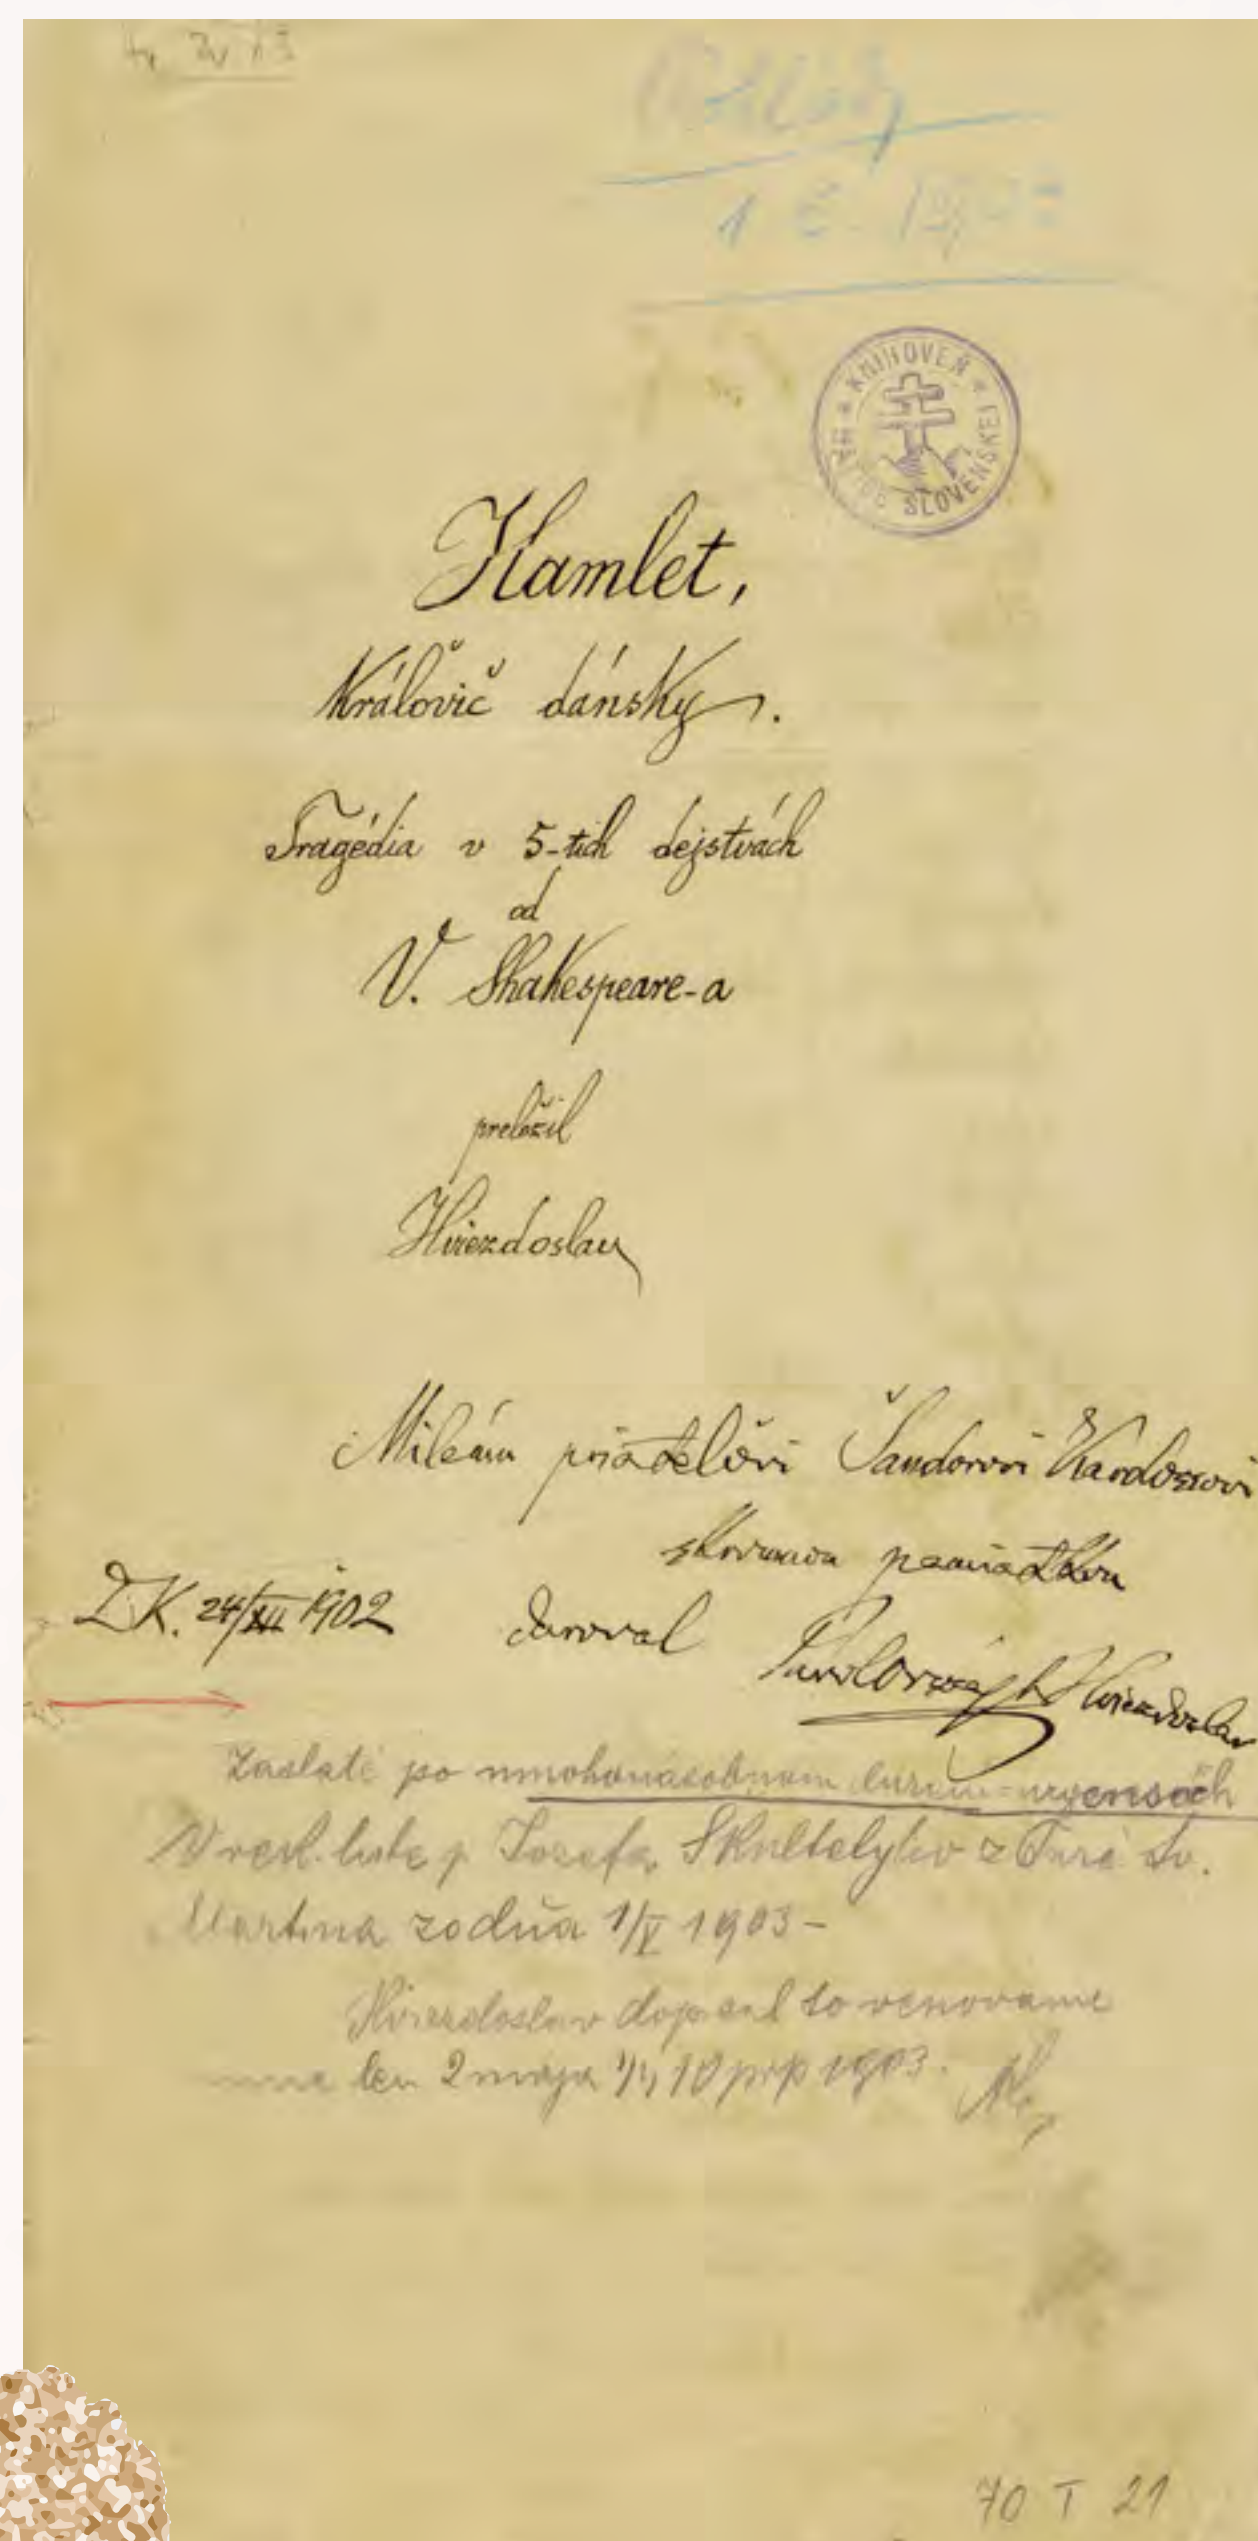 KNIHOVEŇ MATICE SLOVENSKEJ
Hamlet,
Kráľovič dánsky.
Tragédia v 5-tich dejstvách
od
V. Shakespeare-a
preložil
Hviezdoslav
Milému priateľovi Šándorovi Kardossovi
skromnou pamiatkou
D.K. 24/XII 1902 daroval Pavl Országh Hviezdoslav
Zaslaté po mnohonásobnom urgensoch
p. Jozefa Škultétyho z Turč. Sv.
Martina zo dňa 1/V 1903 –
Hviezdoslav dopísal to venovanie
mne len 2 mája 1903.
70 T 21